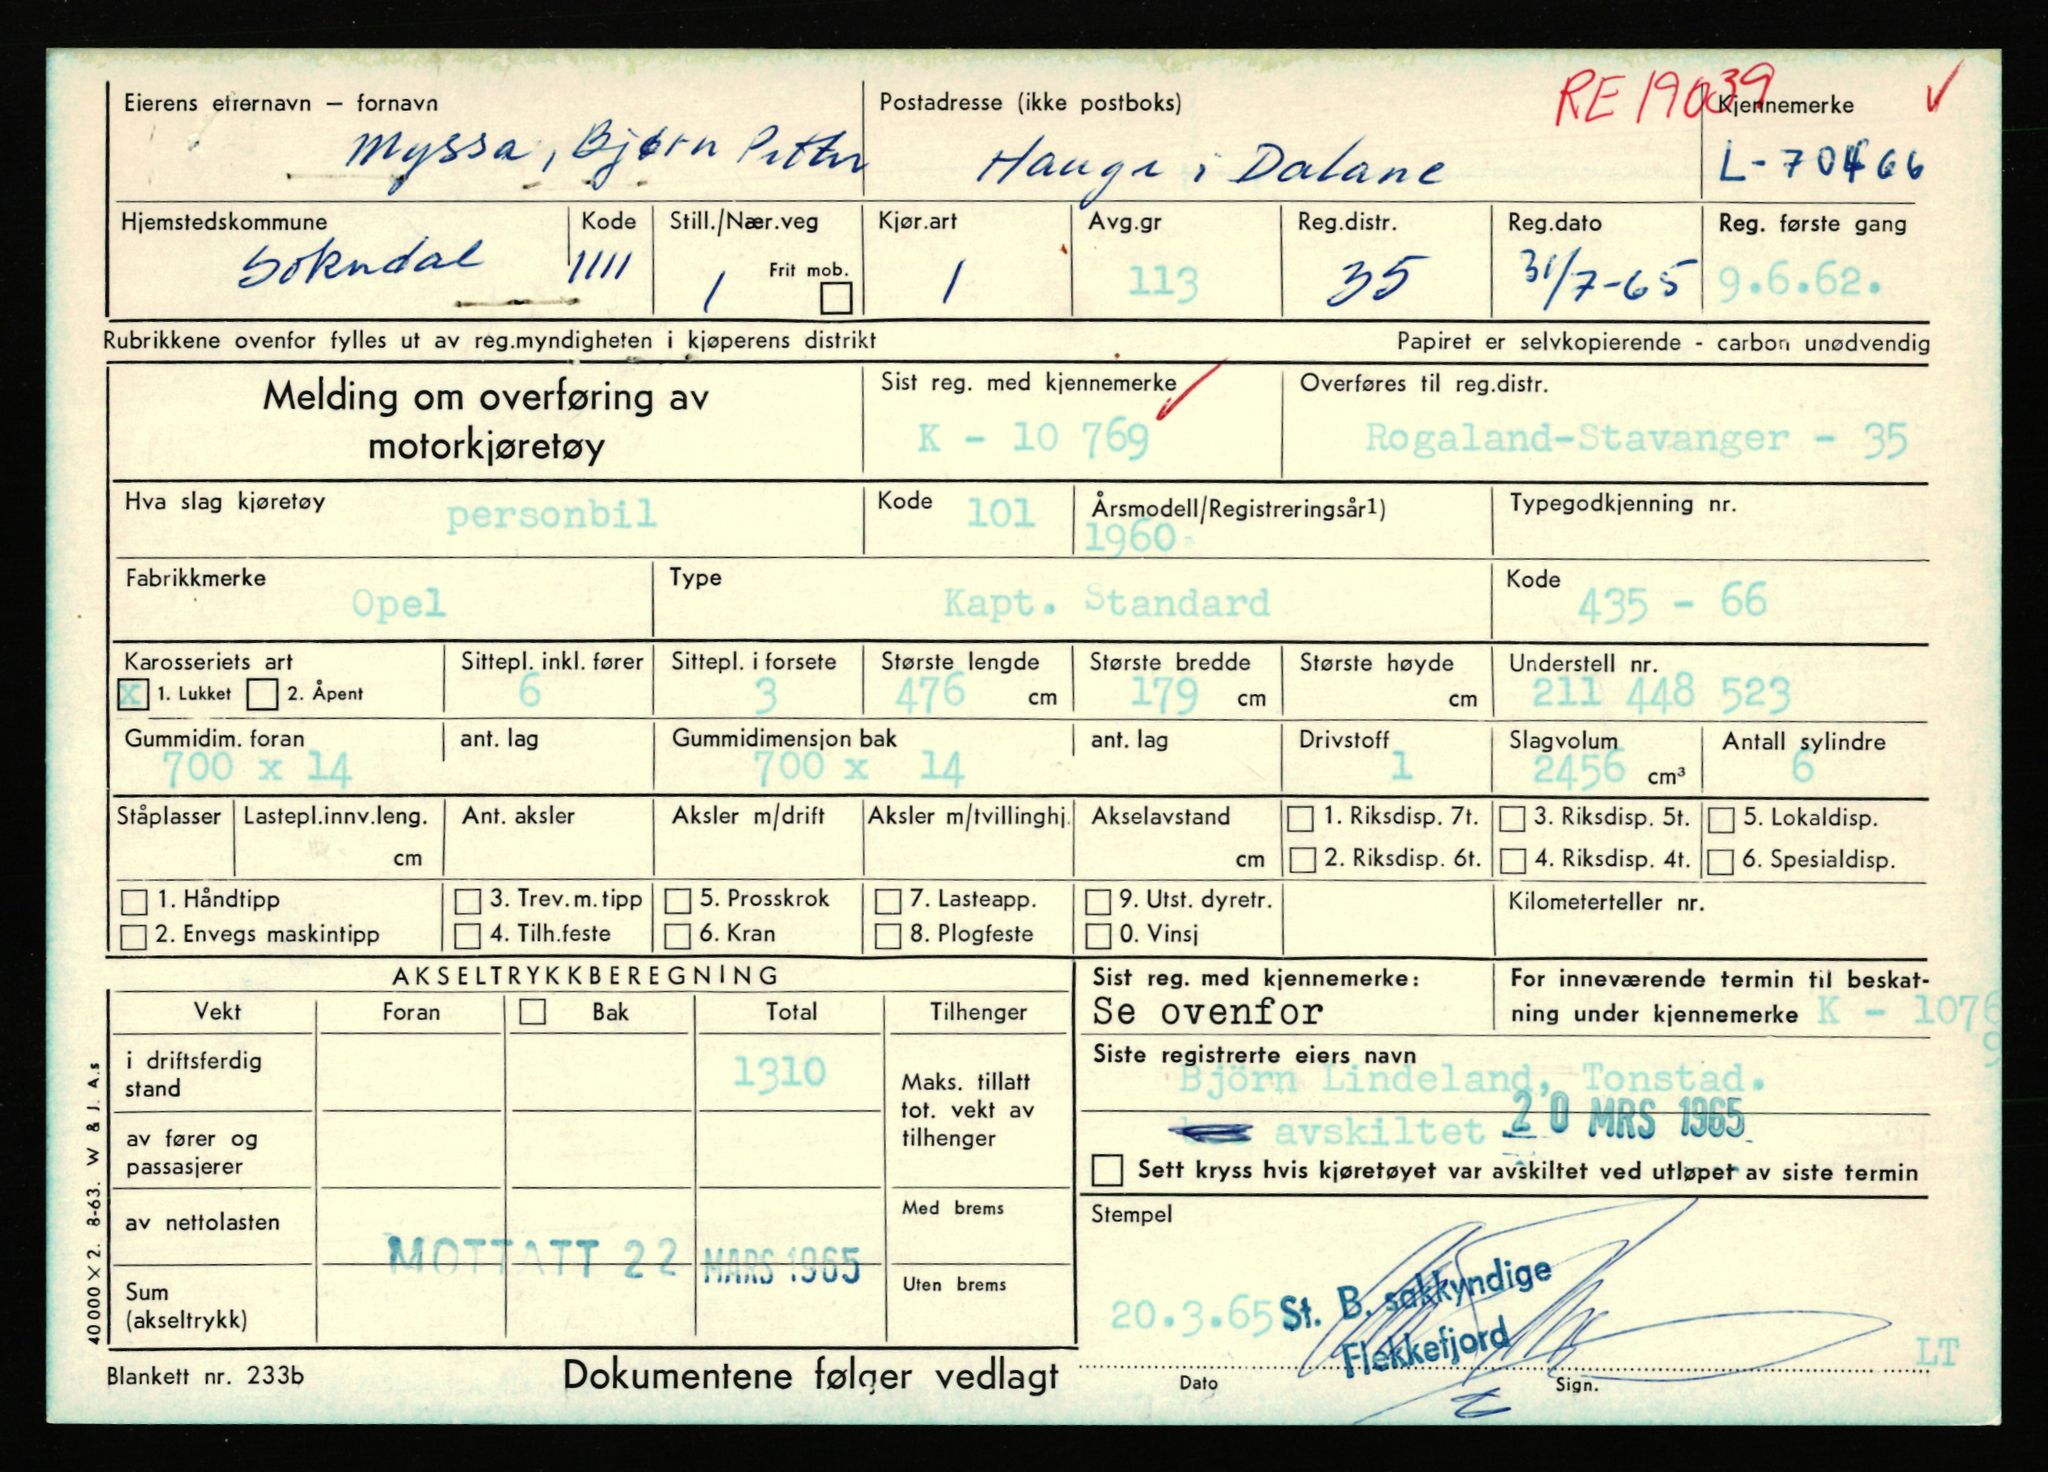 RE 19039
Eierens etternavn – fornavn Postadresse (ikke postboks) Kjennemerke
Myssa, Bjørn Petter Hauge i Dalane L-70466
Hjemstedskommune Kode Still./Nær.veg Kjør.art Avg.gr Reg.distr. Reg.dato Reg. første gang
Sokndal 1111 1 Frit mob. 1 113 35 31/7-65 9.6.62.
Rubrikkene ovenfor fylles ut av reg.myndigheten i kjøperens distrikt Papiret er selvkopierende - carbon unødvendig
Melding om overføring av Sist reg. med kjennemerke Overføres til reg.distr.
motorkjøretøy K - 10 769 Rogaland-Stavanger - 35
Hva slag kjøretøy personbil Kode 101 Årsmodell/Registreringsår1) Typegodkjenning nr.
1960
Fabrikkmerke Type Kode
Opel Kapt. Standard 435 - 66
Karosseriets art Sittepl. inkl. fører Sittepl. i forsete Største lengde Største bredde Største høyde Understell nr.
x 1. Lukket 2. Åpent 6 3 476 cm 179 cm cm 211 448 523
Gummidim. foran ant. lag Gummidimensjon bak ant. lag Drivstoff Slagvolum Antall sylindre
700 x 14 700 x 14 1 2456 cm³ 6
Ståplasser Lastepl.innv.leng. Ant. aksler Aksler m/drift Aksler m/tvillinghj. Akselavstand 1. Riksdisp. 7t. 3. Riksdisp. 5t. 5. Lokaldisp.
cm cm 2. Riksdisp. 6t. 4. Riksdisp. 4t. 6. Spesialdisp.
1. Håndtipp 3. Trev.m.tipp 5. Prosskrok 7. Lasteapp. 9. Utst. dyretr. Kilometerteller nr.
2. Envegs maskintipp 4. Tilh.feste 6. Kran 8. Plogfeste 0. Vinsj
AKSELTRYKKBEREGNING Sist reg. med kjennemerke: For inneværende termin til beskat-
Vekt Foran Bak Total Tilhenger Se ovenfor ning under kjennemerke K - 1076
9
i driftsferdig stand 1310 Maks. tillatt tot. vekt av tilhenger Siste registrerte eiers navn
Björn Lindeland, Tonstad.
av fører og passasjerer avskiltet 20 MRS 1965
Sett kryss hvis kjøretøyet var avskiltet ved utløpet av siste termin
av nettolasten Med brems Stempel
MOTTATT 22 MARS 1965
Sum (akseltrykk) Uten brems 20.3.65 St. B. sakkyndige
Flekkefjord LT
Blankett nr. 233b Dokumentene følger vedlagt Dato Sign.
40 000 x 2. 8-63. W & J. A.s